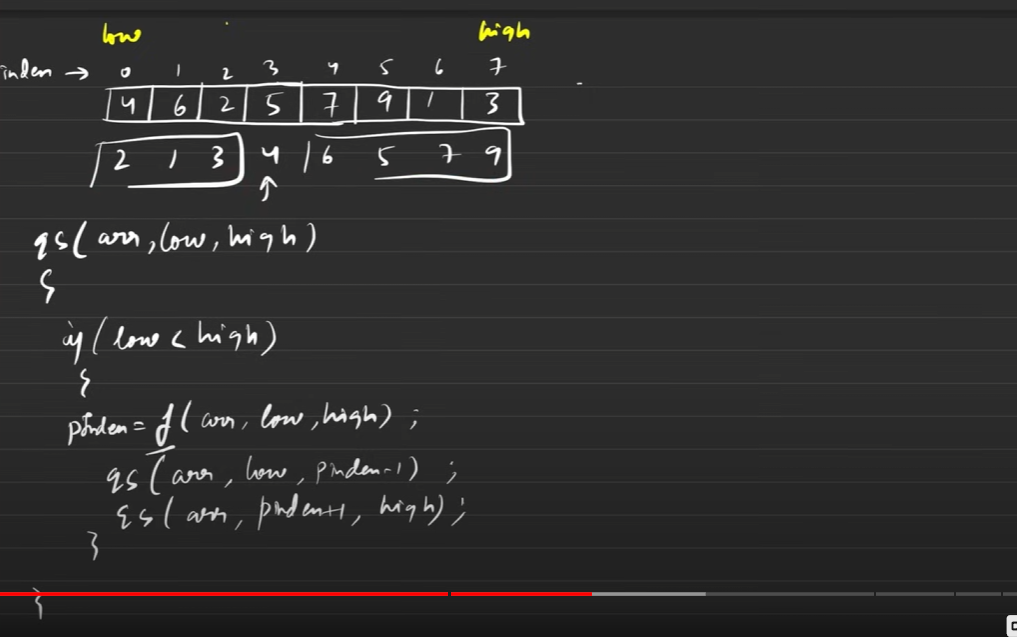 low high
index → 0 1 2 3 4 5 6 7
4 6 2 5 7 9 1 3
2 1 3 4 6 5 7 9
qs(arr, low, high)
{
if (low < high)
{
pIndex = f(arr, low, high);
qs(arr, low, pIndex-1);
qs(arr, pIndex+1, high);
}
}